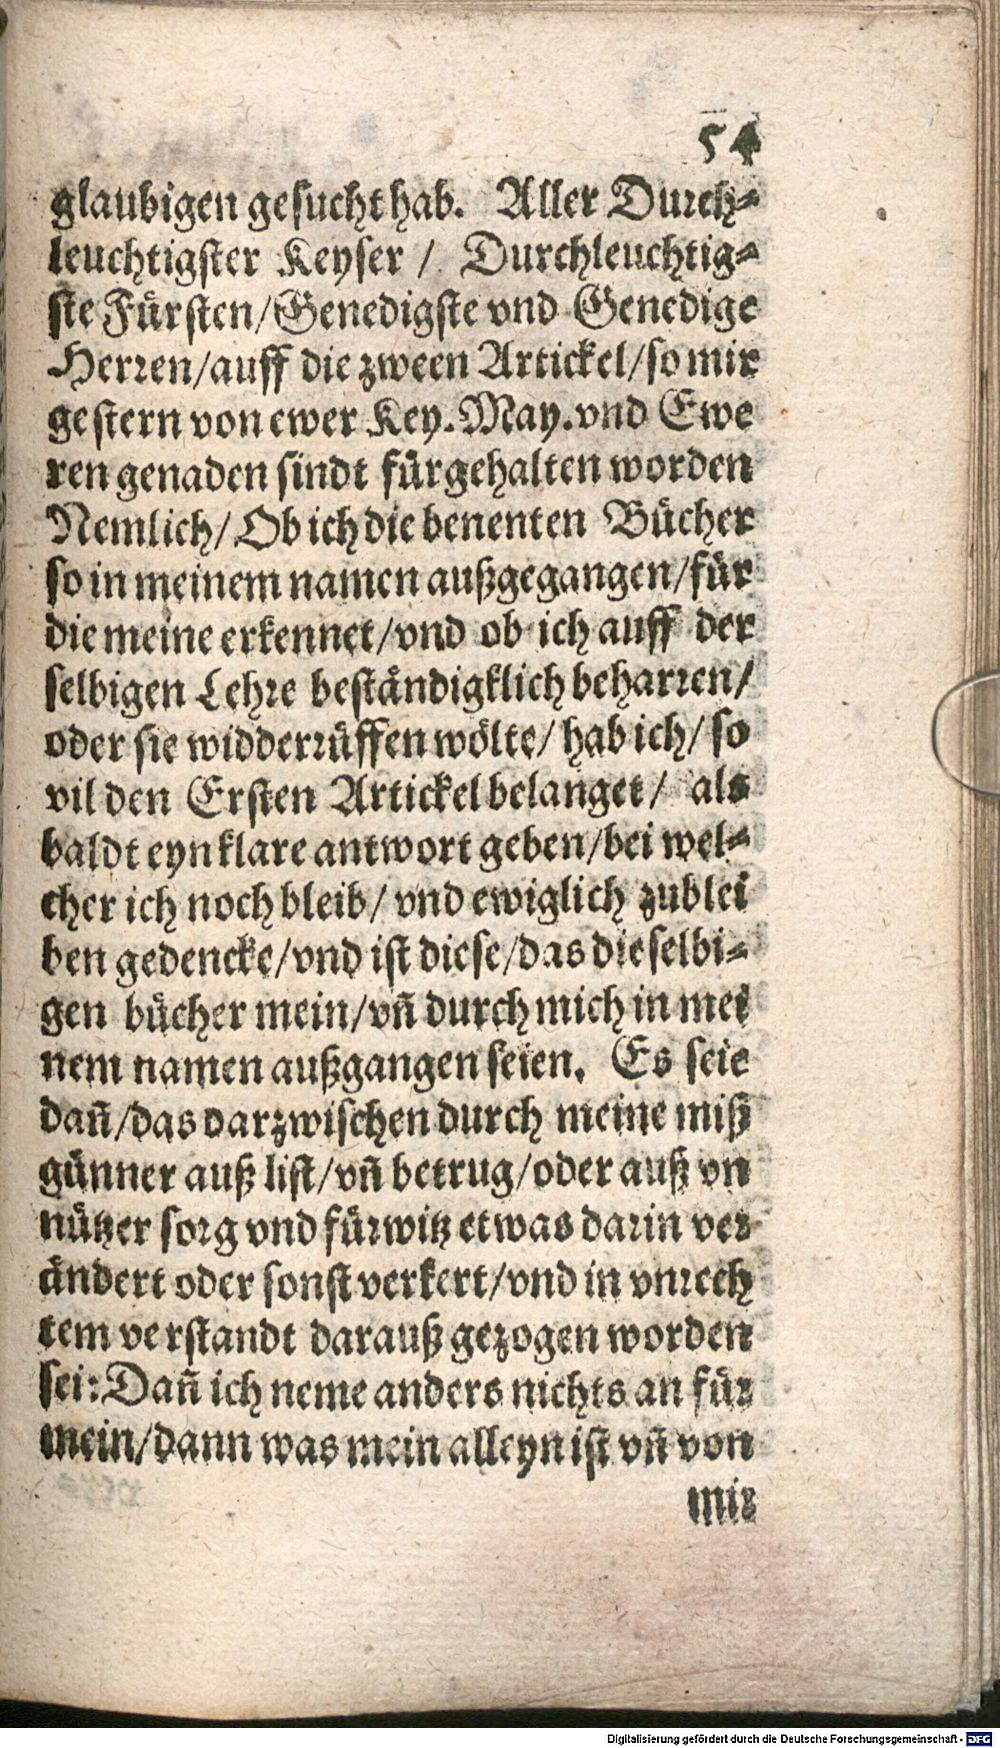 54
glaubigen gesucht hab. Aller Durch-
leuchtigster Keyser / Durchleuchtig-
ste Fürsten/Genedigste vnd Genedige
Herren/auff die zween Artickel/so mir
gestern von ewer Key. May. vnd Ewe
ren genaden sindt fürgehalten worden
Nemlich/ Ob ich die benenten Bücher
so in meinem namen außgegangen/für
die meine erkennet/vnd ob ich auff der
selbigen Lehre beständigklich beharren/
oder sie widderrüffen wölte/ hab ich/ so
vil den Ersten Artickel belanget/ als
baldt eyn klare antwort geben/bei wel-
cher ich noch bleib/ vnd ewiglich zublei
ben gedencke/vnd ist diese/das dieselbi-
gen bücher mein/vñ durch mich in mei
nem namen außgangen seien. Es seie
dañ/das darzwischen durch meine miß
günner auß list/vñ betrug/oder auß vn
nützer sorg vnd fürwitz etwas darin ver
ändert oder sonst verkert/vnd in vnrech
tem verstandt darauß gezogen worden
sei: Dañ ich neme anders nichts an für
mein/dann was mein alleyn ist vñ von
mir
Digitalisierung gefördert durch die Deutsche Forschungsgemeinschaft - DFG